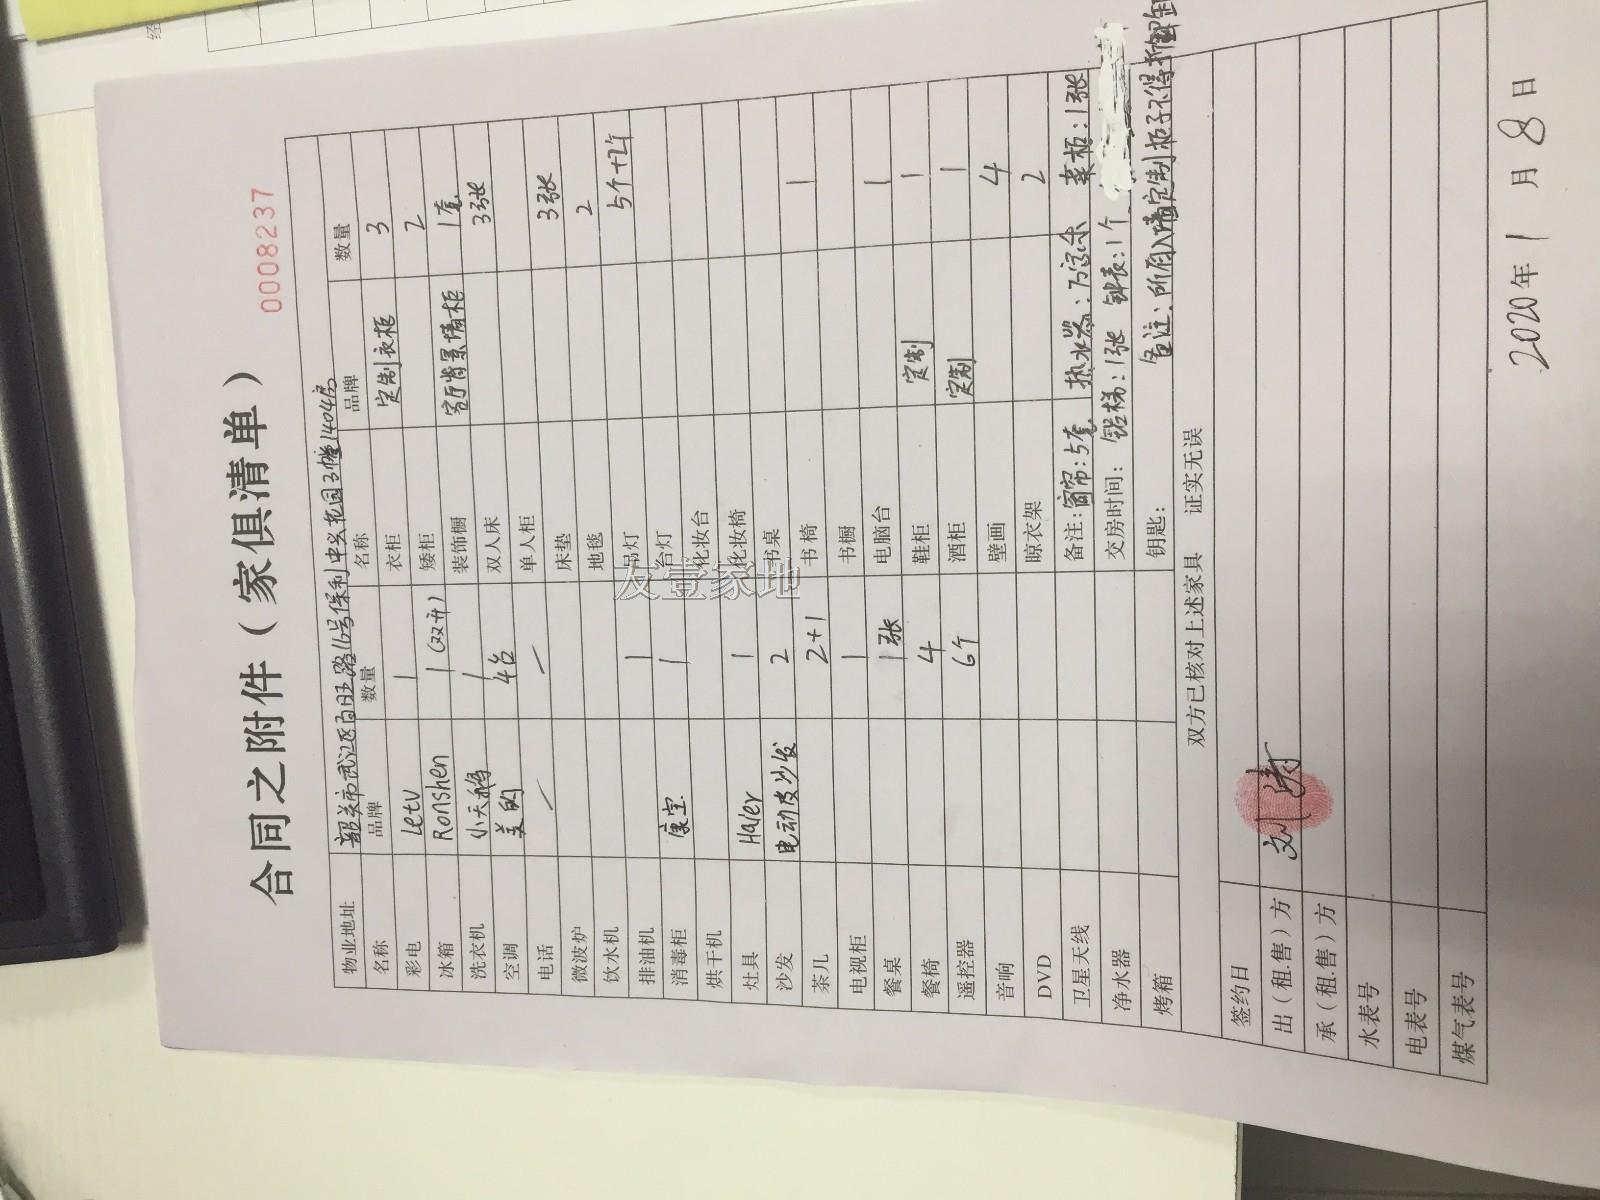 0008237
合同之附件（家俱清单）
物业地址 韶关市武江区百旺路16号保利中央花园3幢1404房
名称 品牌 数量 名称 品牌 数量
彩电 letv 1 衣柜 定制衣柜 3
冰箱 Ronshen 1(双开) 矮柜 2
洗衣机 小天鹅 1 装饰橱 客厅背景墙柜 1套
空调 美的 4台 双人床 3张
电话 单人柜
微波炉 床垫 3张
饮水机 地毯 2
排油机 1 吊灯 5个+2个
消毒柜 康宝 1 台灯
烘干机 化妆台
灶具 Haler 1 化妆椅
沙发 电动皮沙发 2 书桌
茶几 2+1 书椅 1
电视柜 1 书橱
餐桌 1张 电脑台 1
餐椅 4 鞋柜 定制 1
遥控器 6个 酒柜 定制 1
音响 壁画 4
DVD 晾衣架 2
卫星天线 备注：窗帘：5套 热水器：万家乐 菜柜：1张
净水器 交房时间： 铝梯：1张 钟表：1个
烤箱 钥匙： 备注：所有入墙定制柜子不得拆卸
双方已核对上述家具 证实无误
签约日
出（租.售）方 刘涛
承（租.售）方
水表号
电表号
煤气表号
2020年1月8日
友壹家地